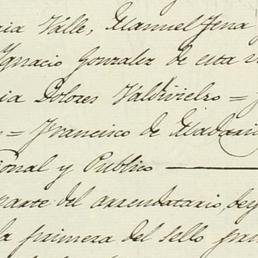 ria Valle, Manuel Jena y
Ignacio Gonzalez de esta v
ria Dolores Valdivielso =
= Francisco de Madari
ional y Publico
parte del arrendatario, dey
la primera del sello pri